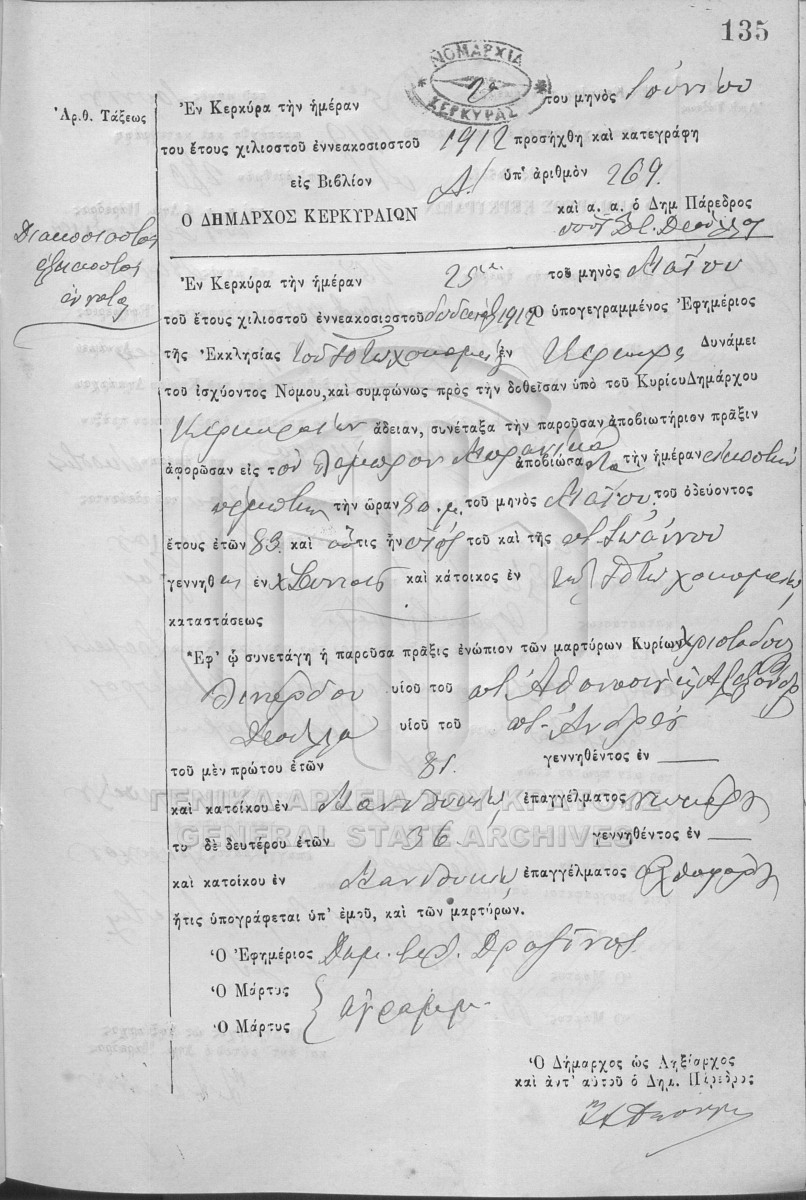 135
ΝΟΜΑΡΧΙΑ
ΚΕΡΚΥΡΑΣ
Ἀρ.θ. Τάξεως
Ἐν Κερκύρᾳ τὴν ἡμέραν 2ᾳ τοῦ μηνὸς Ἰουνίου
τοῦ ἔτους χιλιοστοῦ ἐννεακοσιοστοῦ 1912 προσήχθη καὶ κατεγράφη
εἰς Βιβλίον Α/ ὑπ' ἀριθμὸν 269.
Ο ΔΗΜΑΡΧΟΣ ΚΕΡΚΥΡΑΙΩΝ καὶ α. α. ὁ Δημ Πάρεδρος
Διακοσιοστὸς
ἑξηκοστὸς
ἔννατος
Ἐν Κερκύρᾳ τὴν ἡμέραν 25 τοῦ μηνὸς Μαΐου
τοῦ ἔτους χιλιοστοῦ ἐννεακοσιοστοῦ δωδεκάτου 1912 Ὁ ὑπογεγραμμένος Ἐφημέριος
τῆς Ἐκκλησίας τοῦ Πτωχοκομείου ἐν Κερκύρᾳ Δυνάμει
τοῦ ἰσχύοντος Νόμου, καὶ συμφώνως πρὸς τὴν δοθεῖσαν ὑπὸ τοῦ Κυρίου Δημάρχου
Κερκυραίων ἄδειαν, συνέταξα τὴν παροῦσαν ἀποβιωτήριον πρᾶξιν
ἀφορῶσαν εἰς τὸν Λάμπρον ἀποβιώσαντα τὴν ἡμέραν εἰκοστὴν
πέμπτην τὴν ὥραν 8 π.μ. τοῦ μηνὸς Μαΐου τοῦ ὁδεύοντος
ἔτους ἐτῶν 83 καὶ ὅστις ἦν υἱὸς τοῦ καὶ τῆς ποτ. Ἰωάννου
γεννηθεὶς ἐν καὶ κάτοικος ἐν τῷ Πτωχοκομείῳ
καταστάσεως
Ἐφ' ᾧ συνετάγη ἡ παροῦσα πρᾶξις ἐνώπιον τῶν μαρτύρων Κυρίων Χριστοδούλου
υἱοῦ τοῦ ποτ. Ἀθανασίου καὶ Ἀλεξάνδρου
υἱοῦ τοῦ ποτ. Ἀνδρέα
τοῦ μὲν πρώτου ἐτῶν 81. γεννηθέντος ἐν
καὶ κατοίκου ἐν Μανδουκίῳ ἐπαγγέλματος
τυ δὲ δευτέρου ἐτῶν 36. γεννηθέντος ἐν
καὶ κατοίκου ἐν Μανδουκίῳ ἐπαγγέλματος
ἥτις ὑπογράφεται ὑπ' ἐμοῦ, καὶ τῶν μαρτύρων.
Ὁ Ἐφημέριος
Ὁ Μάρτυς
Ὁ Μάρτυς
ἀγράμμ.
Ὁ Δήμαρχος ὡς Ληξίαρχος
καὶ ἀντ' αὐτοῦ ὁ Δημ. Πάρεδρος
ΓΕΝΙΚΑ ΑΡΧΕΙΑ ΤΟΥ ΚΡΑΤΟΥΣ
GENERAL STATE ARCHIVES